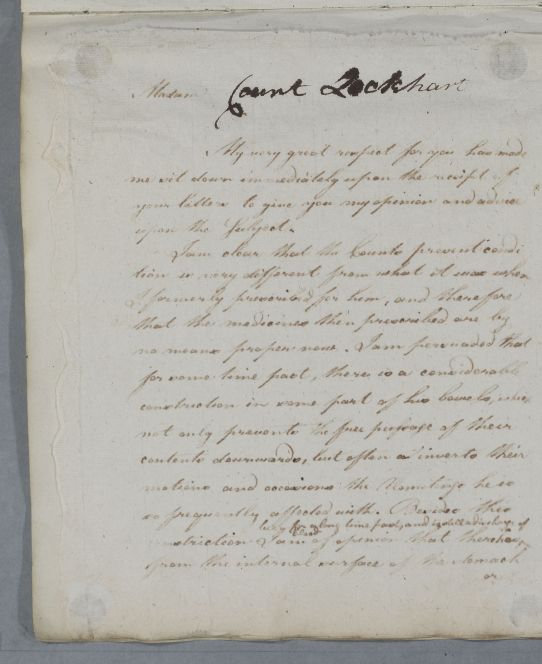 Madam
Count Lockhart
My very great respect for you has made
me sit down immediately upon the receipt of
your letters to give you my opinion and advice
upon the Subject.
I am clear that the Counts present condi
tion is very different from what it was when
I formerly prescribed for him, and therefore
that the medicines then prescribed are by
no means proper now. I am persuaded that
for some time past, there is a considerable
constriction in some part of his bowels, which
not only prevents the free passage of their
contents downwards, but often inverts their
motions and occasions the Vomitings he is
so frequently affected with. Besides this
been for a long time past, and is still a discharge of
blood
constriction I am of opinion that there has
from the internal surface of the stomach
or